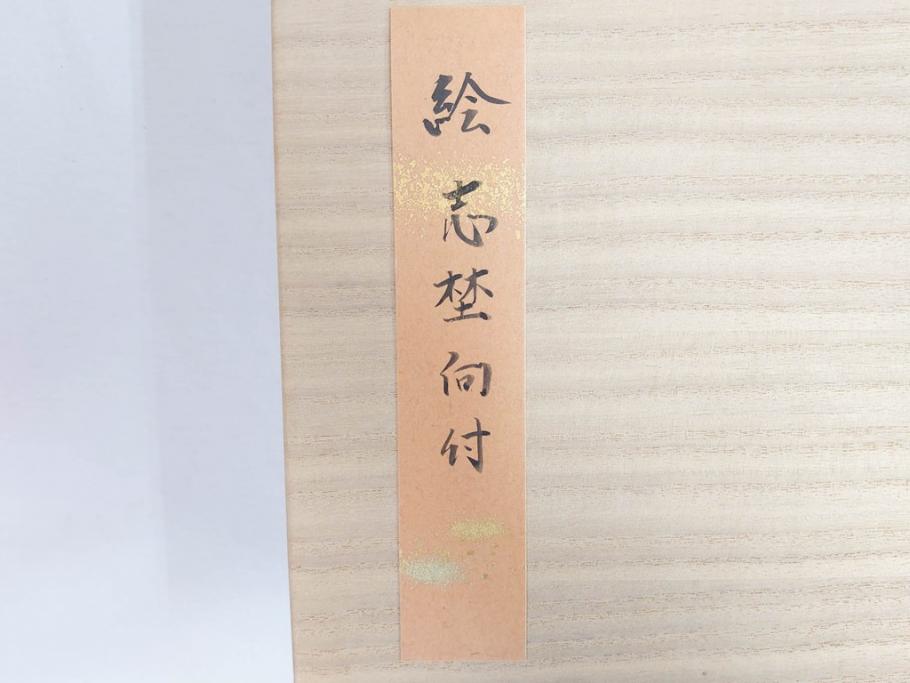 絵志埜向付